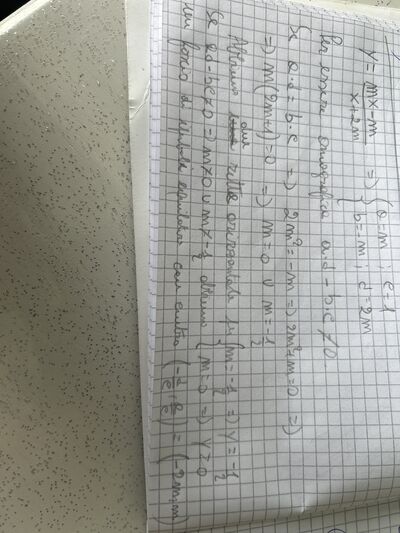 y = mx-m / x+2m => { a=m ; c=1
b=-m ; d=2m
Per essere omografica a.d - b.c ≠ 0.
Se a.d = b.c => 2m² = -m => 2m²+m=0 =>
=> m(2m+1)=0 => m=0 ∪ m=-1/2
Abbiamo due rette orizzontali per { m=-1/2 => y=-1/2
m=0 => y=0
Se ad-bc≠0 => m≠0 ∪ m≠-1/2 otteniamo
un fascio di iperbole equilatere con centro (-d/c; a/c) = (-2m; m)